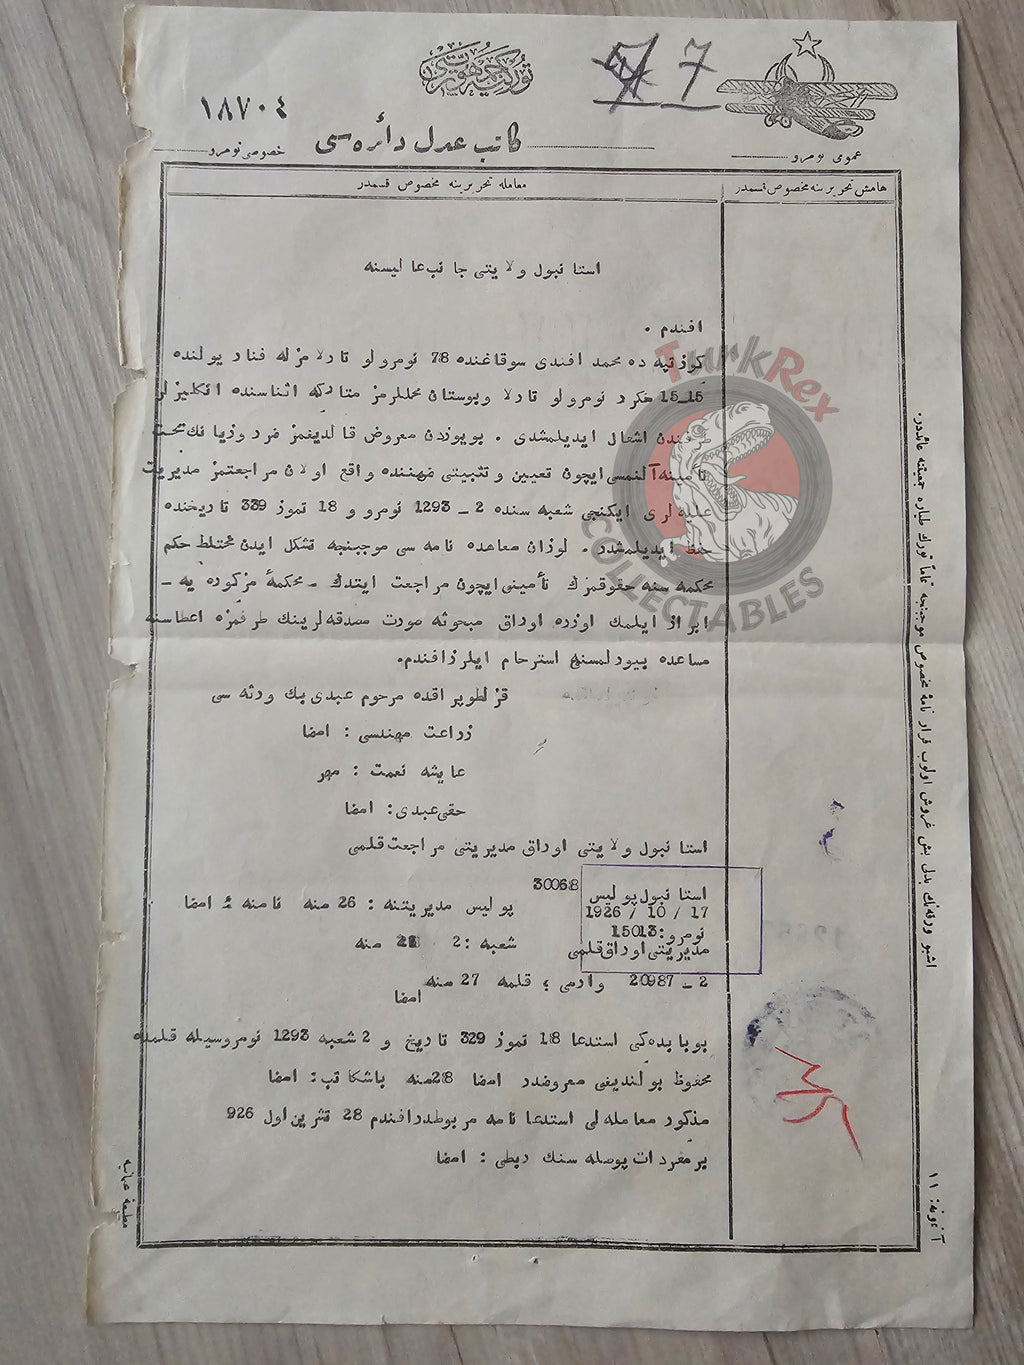 تورکیه جمهوریتی
7
١٨٧٠٤
کاتب عدل دائره سی
عمومی نومرو
خصوصی نومرو
هامش تحریرینه مخصوص قسمدر
معامله تحریرینه مخصوص قسمدر
استانبول ولایتی جانب عالیسنه
افندم .
کوزتپه ده محمد افندی سوقاغنده 78 نومرولو تارلامزله فنار یولنده
15_15 مکرر نومرولو تارلا وبوستان محللرمز متارکه اثناسنده انکلیزلر
طرفندن اشغال ایدیلمشدی . بویوزدن معروض قالدیغمز ضرروزیانك تحت
تأمینه آلنمسی ایچون تعیین وتثبیتی ضمننده واقع اولان مراجعتمز مدیریت
علیه لری ایکنجی شعبه سنده 2 _ 1293 نومرو و 18 تموز 339 تاریخنده
حفظ ایدیلمشدر . لوزان معاهده نامه سی موجبنجه تشکل ایدن مختلط حکم
محکمه سنه حقوقمزك تأمینی ایچون مراجعت ایتدك _ محکمۀ مزکوره یه _
ابراز ایلمك اوزره اوراق مبحوثه صورت مصدقه لرینك طرفمزه اعطاسنه
مساعده بیورلمسنی استرحام ایلرز افندم.
قزلطوپراقده مرحوم عبدی بك ورثه سی
زراعت مهندسی : امضا
عایشه نعمت : مهر
حقی عبدی: امضا
استانبول ولایتی اوراق مدیریتی مراجعت قلمی
استانبول پولیس 30068
17 / 10 / 1926 پولیس مدیریتنه : 26 منه نامنه امضا
نومرو: 15013
مدیریتی اوراق قلمی شعبه : 2 منه
2 _ 20987 وارمی ؛ قلمه 27 منه
امضا
بوبابده کی استدعا 18 تموز 329 تاریخ و 2 شعبه 1293 نومروسیله قلمده
محفوظ بولندیغی معروضدر امضا 28 منه باشکاتب: امضا
مذکور معامله لی استدعا نامه مربوطدر افندم 28 تشرین اول 926
بر مفردات پوصله سنك ربطی : امضا
اشبو ورقه نك بدلی بش غروش اولوب قرارنامۀ مخصوص موجبنجه تماماً تورك طیاره جمعیتنه عائددر.
آ نمونه : ١١
مطبعۀ عثمانیه
TurkRex
COLLECTABLES